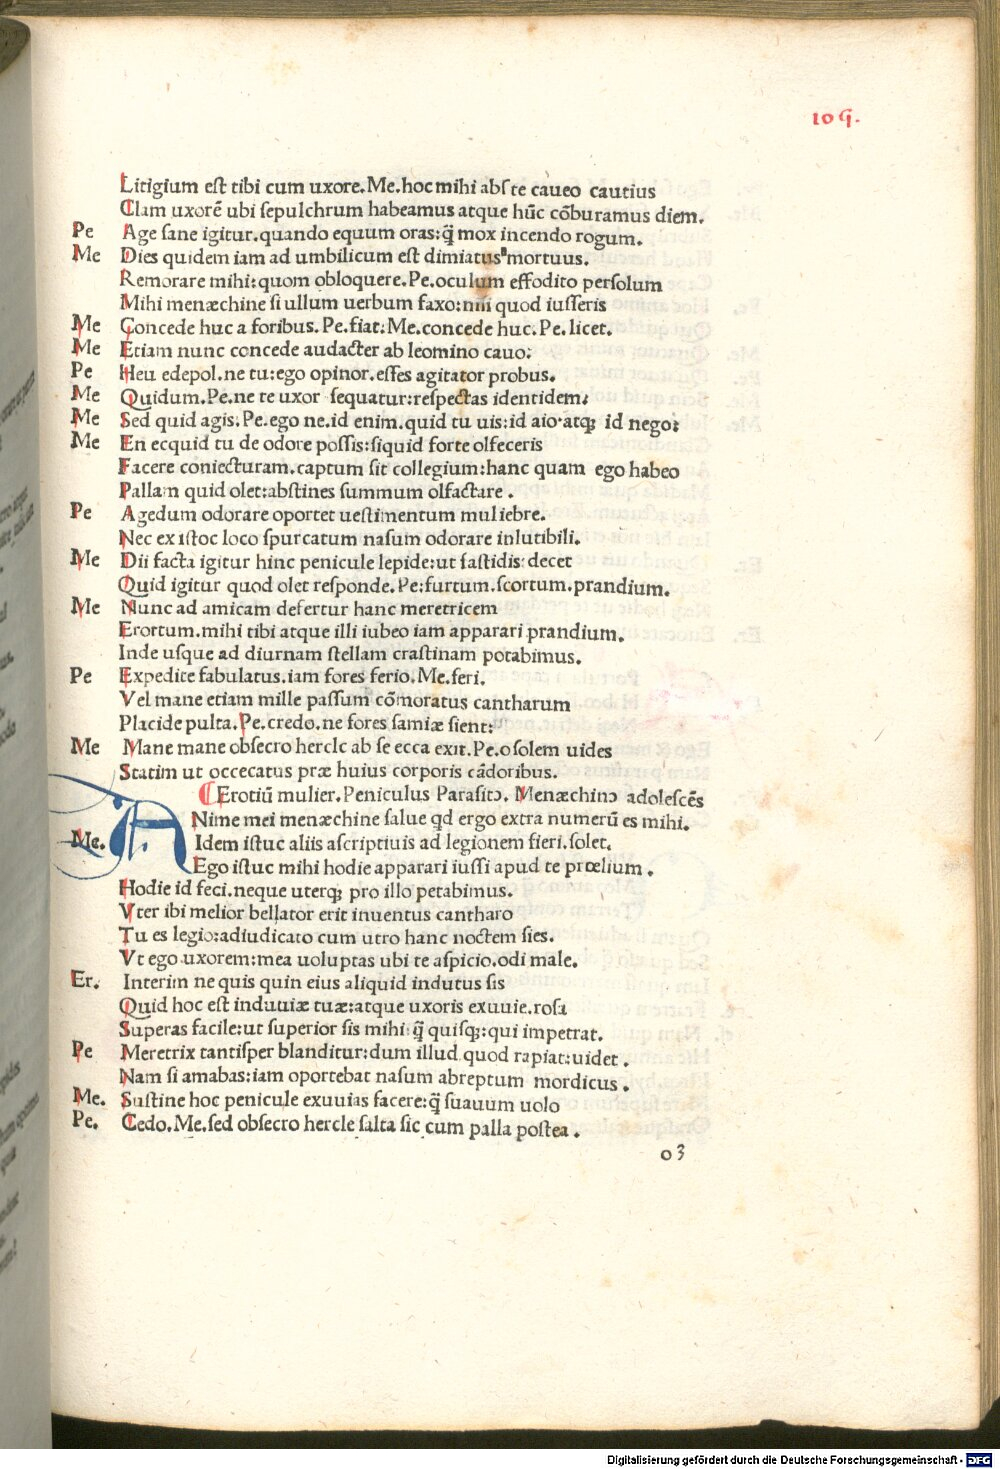 109.
Litigium est tibi cum uxore.Me.hoc mihi abs te caueo cautius
Clam uxorē ubi sepulchrum habeamus atque hūc cōburamus diem.
Pe Age sane igitur.quando equum oras:q̄ mox incendo rogum.
Me Dies quidem iam ad umbilicum est dimiatus mortuus.
Remorare mihi:quom obloquere.Pe.oculum effodito persolum
Mihi menæchine si ullum uerbum faxo:nisi quod iusseris
Me Concede huc a foribus.Pe.fiat:Me.concede huc.Pe.licet.
Me Etiam nunc concede audacter ab leomino cauo:
Pe Heu edepol.ne tu:ego opinor.esses agitator probus.
Me Quidum.Pe.ne te uxor sequatur:respectas identidem:
Me Sed quid agis.Pe.ego ne.id enim.quid tu uis:id aio.atqꝫ id nego:
Me En ecquid tu de odore possis:siquid forte olfeceris
Facere coniecturam.captum sit collegium:hanc quam ego habeo
Pallam quid olet:abstines summum olfactare.
Pe Agedum odorare oportet uestimentum muliebre.
Nec ex istoc loco spurcatum nasum odorare inlutibili.
Me Dii facta igitur hinc penicule lepide:ut fastidis decet
Quid igitur quod olet responde.Pe:furtum.scortum.prandium.
Me Nunc ad amicam defertur hanc meretricem
Erortum.mihi tibi atque illi iubeo iam apparari prandium.
Inde usque ad diurnam stellam crastinam potabimus.
Pe Expedite fabulatus.iam fores ferio.Me.feri.
Vel mane etiam mille passum cōmoratus cantharum
Placide pulta.Pe.credo.ne fores samiæ sient:
Me Mane mane obsecro hercle ab se ecca exit.Pe.o solem uides
Statim ut occecatus præ huius corporis cādoribus.
Erotiū mulier.Peniculus Parasitɔ. Menæchinɔ adolescēs
ANime mei menæchine salue qd ergo extra numerū es mihi.
Me. Idem istuc aliis ascriptiuis ad legionem fieri.solet.
Ego istuc mihi hodie apparari iussi apud te prœlium.
Hodie id feci.neque uterqꝫ pro illo petabimus.
Vter ibi melior bellator erit inuentus cantharo
Tu es legio:adiudicato cum utro hanc noctem sies.
Vt ego uxorem:mea uoluptas ubi te aspicio.odi male.
Er. Interim ne quis quin eius aliquid indutus sis
Quid hoc est induuiæ tuæ:atque uxoris exuuie.rosa
Superas facile:ut superior sis mihi:q̄ quisqꝫ:qui impetrat.
Pe Meretrix tantisper blanditur:dum illud quod rapiat:uidet.
Nam si amabas:iam oportebat nasum abreptum mordicus.
Me. Sustine hoc penicule exuuias facere:q̄ suauum uolo
Pe. Cedo.Me.sed obsecro hercle salta sic cum palla postea.
o3
Digitalisierung gefördert durch die Deutsche Forschungsgemeinschaft - DFG